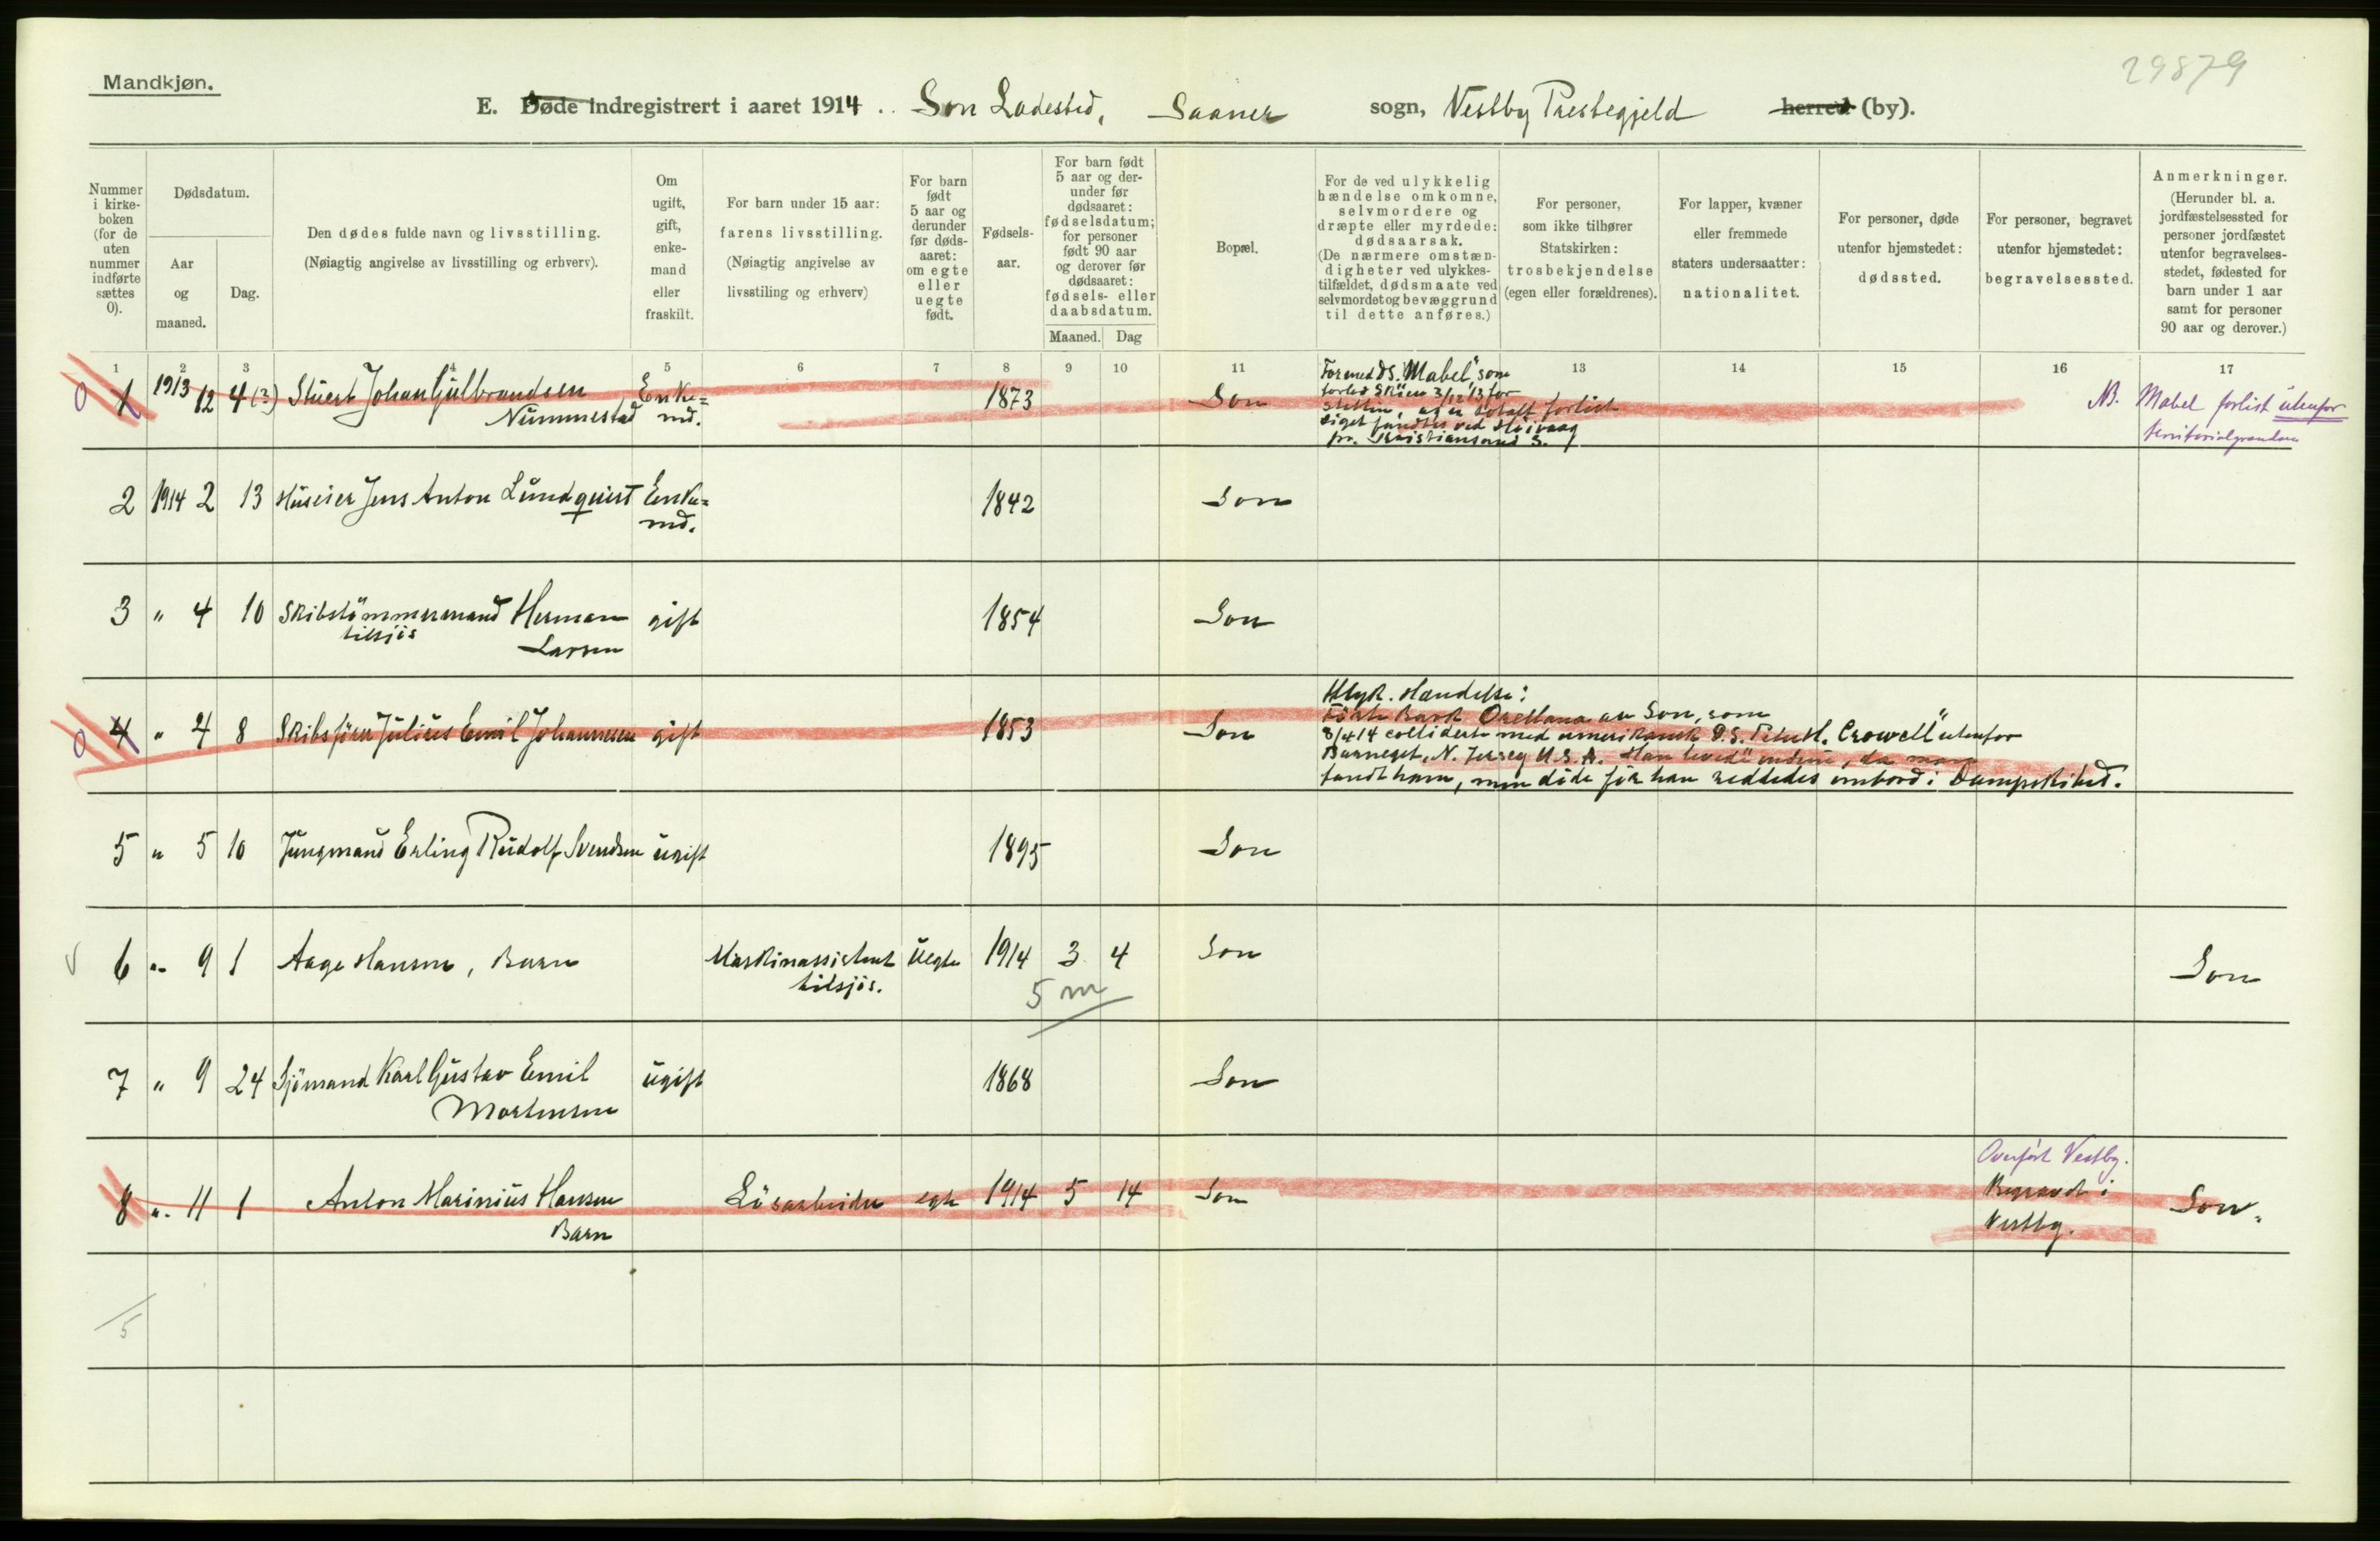 29879
Mandkjøn.
E. Døde indregistrert i aaret 1914 . . Son Ladested, Saaner sogn, Vestby Prestegjeld herred (by).
Nummer i kirke- boken (for de uten nummer indførte sættes 0).
Dødsdatum.
Aar og maaned.
Dag.
Den dødes fulde navn og livsstilling.
(Nøiagtig angivelse av livsstilling og erhverv).
Om ugift, gift, enke- mand eller fraskilt.
For barn under 15 aar: farens livsstilling.
(Nøiagtig angivelse av livsstiling og erhverv)
For barn født 5 aar og derunder før døds- aaret: om egte eller uegte født.
Fødsels- aar.
For barn født 5 aar og der- under før dødsaaret: fødselsdatum; for personer født 90 aar og derover før dødsaaret: fødsels- eller daabsdatum.
Maaned. Dag
Bopæl.
For de ved ulykkelig hændelse omkomne, selvmordere og dræpte eller myrdede: dødsaarsak.
(De nærmere omstæn- digheter ved ulykkes- tilfældet, dødsmaate ved selvmordet og bevæggrund til dette anføres.)
For personer, som ikke tilhører Statskirken: trosbekjendelse (egen eller forældrenes).
For lapper, kvæner eller fremmede staters undersaatter: nationalitet.
For personer, døde utenfor hjemstedet: dødssted.
For personer, begravet utenfor hjemstedet: begravelsessted.
Anmerkninger.
(Herunder bl. a. jordfæstelsessted for personer jordfæstet utenfor begravelses- stedet, fødested for barn under 1 aar samt for personer 90 aar og derover.)
1 2 3 4 5 6 7 8 9 10 11 13 14 15 16 17
0 1 1913 12 4 (3) Stuert Johan Gulbrandsen Enke= 1873 Son
Nummestad md.
For med DS. "Mabel" som
forlod Skien 3/12 '13 for
Stettin, og er totalt forlist
Liget fandtes ved Høivaag
pr. Kristiansand S.
NB. Mabel forlist utenfor
territorialgrænsen
2 1914 2 13 Huseier Jens Anton Lundquist Enke= 1842 Son
md.
3 " 4 10 Skibstömmermand Herman gift 1854 Son
tilsjös Larsen
0 4 " 4 8 Skibsförer Julius Emil Johannesen gift 1853 Son
Ulyk. Hændelse:
Förte Bark Orellana av Son, som
8/4 14 colliderte med amerikansk D.S. Peter H. Crowell" utenfor
Barneget, N. Jersey U.S.A. Han levede endnu, da man
fandt ham, men døde før han reddedes ombord i Dampskibet.
5 " 5 10 Jungmand Erling Rudolf Svendsen ugift 1895 Son
6 " 9 1 Aage Hansen, Barn Maskinassistent uegte 1914 3 4 Son Son
tilsjös. 5 m
7 " 9 24 Sjömand Karl Gustav Emil ugift 1868 Son
Mortensen
Overført Vestby.
8 " 11 1 Anton Marinius Hansen Lösarbeider egte 1914 5 14 Son Begravet i Son.
Barn Vestby.
5